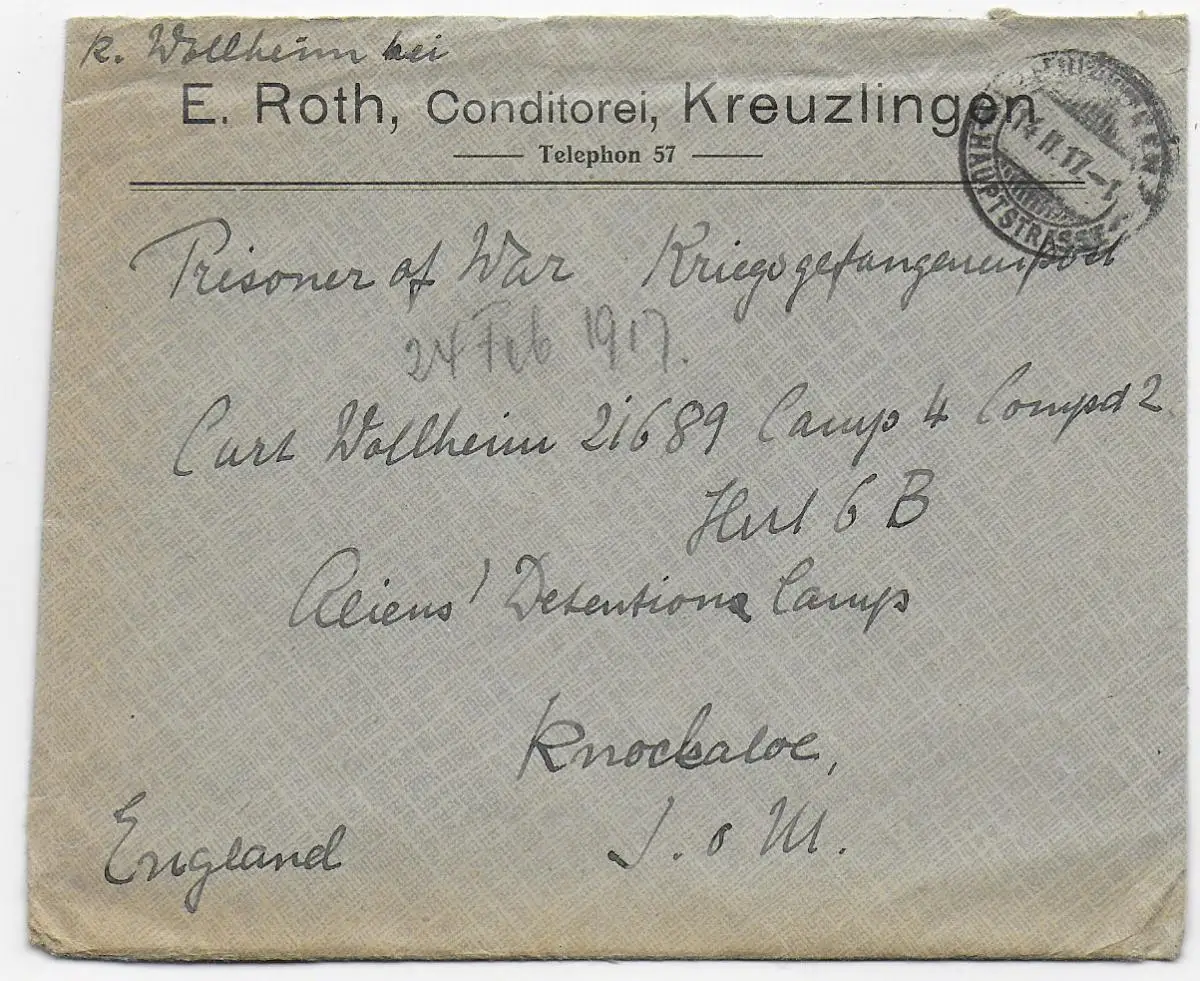 K. Wollheim bei
E. Roth, Conditorei, Kreuzlingen
Telephon 57
KREUZLINGEN
14.II.17.-1
HAUPTSTRASSE
Prisoner of War Kriegsgefangenenpost
24 Feb 1917.
Curt Wollheim 21689 Camp 4 Compd 2
Hut 6 B
Aliens' Detention Camp
Knockaloe,
I. o M.
England